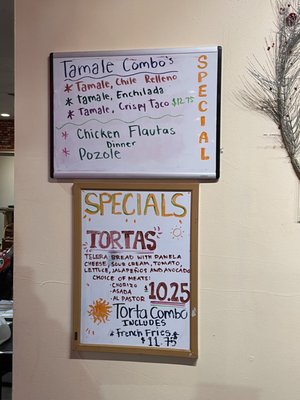 Tamale Combo's
* Tamale, Chile Relleno
* Tamale, Enchilada
* Tamale, Crispy Taco $12.75
* Chicken Flautas
Dinner
* Pozole
SPECIAL
SPECIALS
TORTAS
TELERA BREAD WITH PANELA
CHEESE, SOUR CREAM, TOMATO,
LETTUCE, JALAPEÑOS AND AVOCADO
CHOICE OF MEATS:
- CHORIZO
- ASADA
- AL PASTOR
$10.25
Torta Combo
INCLUDES
* French Fries *
$11.75